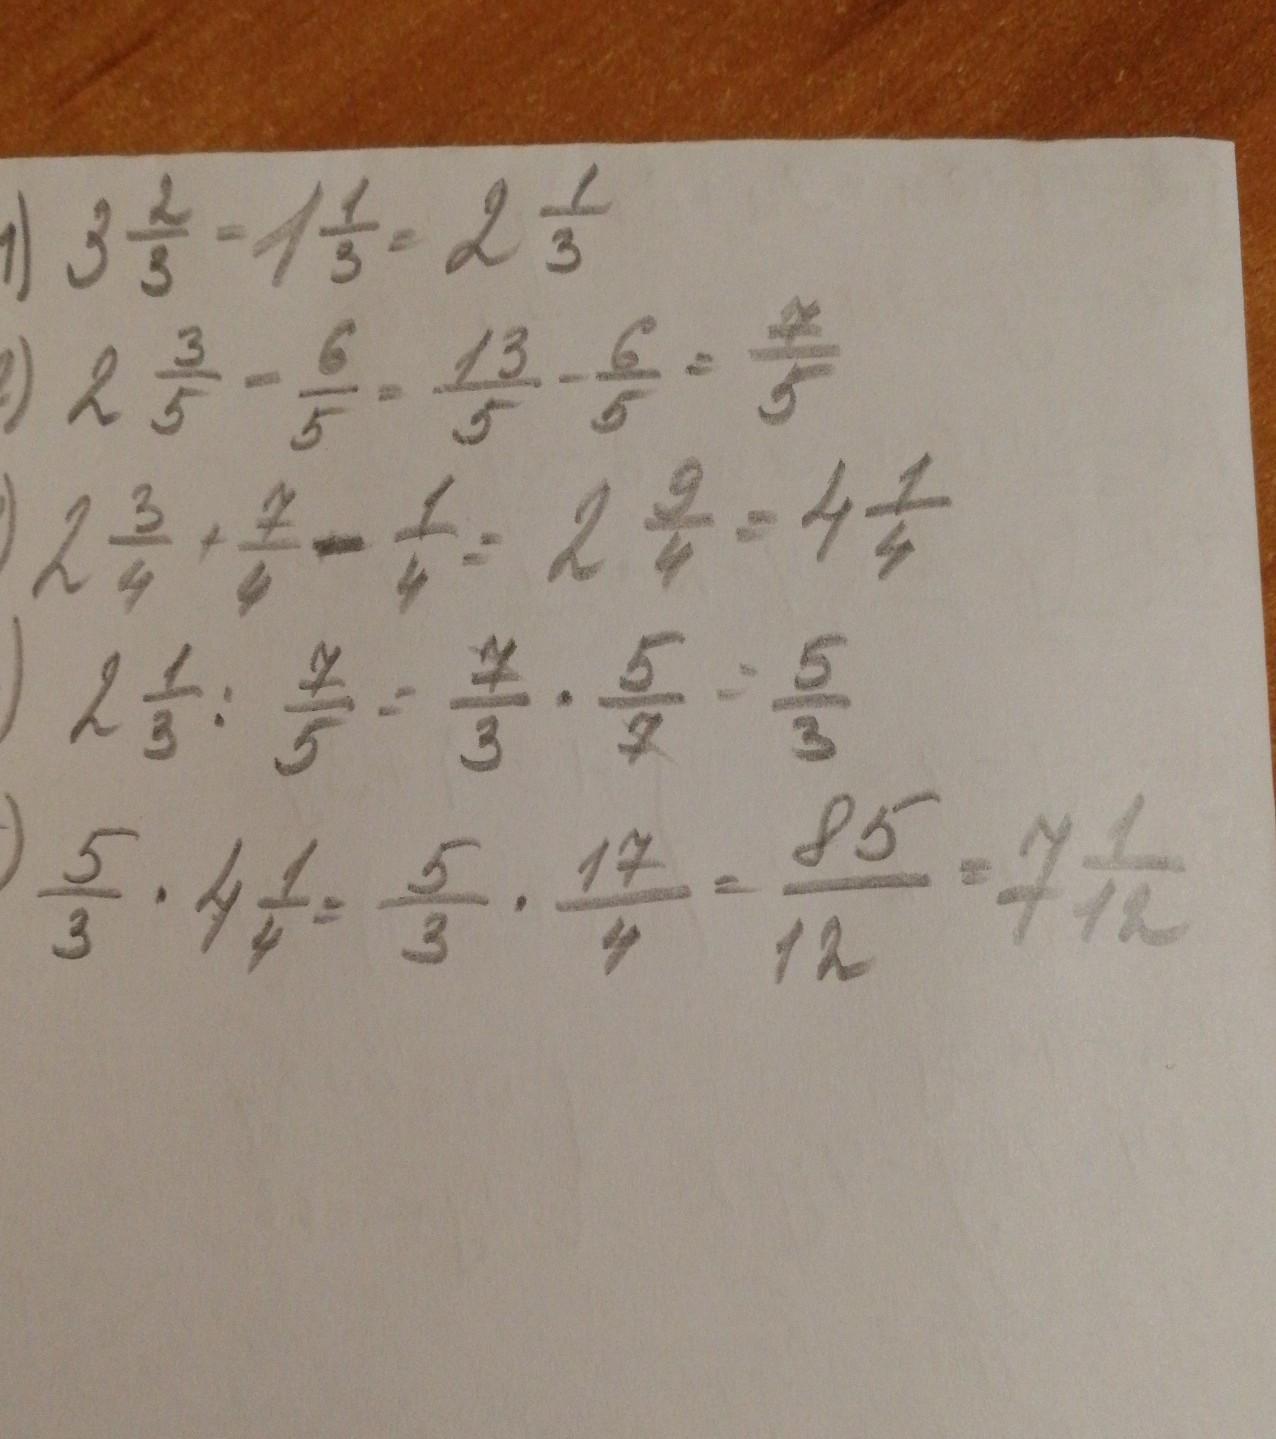 1) 3 2/3 - 1 1/3 = 2 1/3
2) 2 3/5 - 6/5 = 13/5 - 6/5 = 7/5
) 2 3/4 + 7/4 - 1/4 = 2 9/4 = 4 1/4
) 2 1/3 : 7/5 = 7/3 · 5/7 = 5/3
) 5/3 · 4 1/4 = 5/3 · 17/4 = 85/12 = 7 1/12